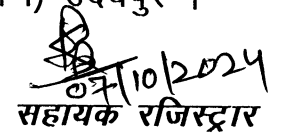 07/10/2024
सहायक रजिस्ट्रार